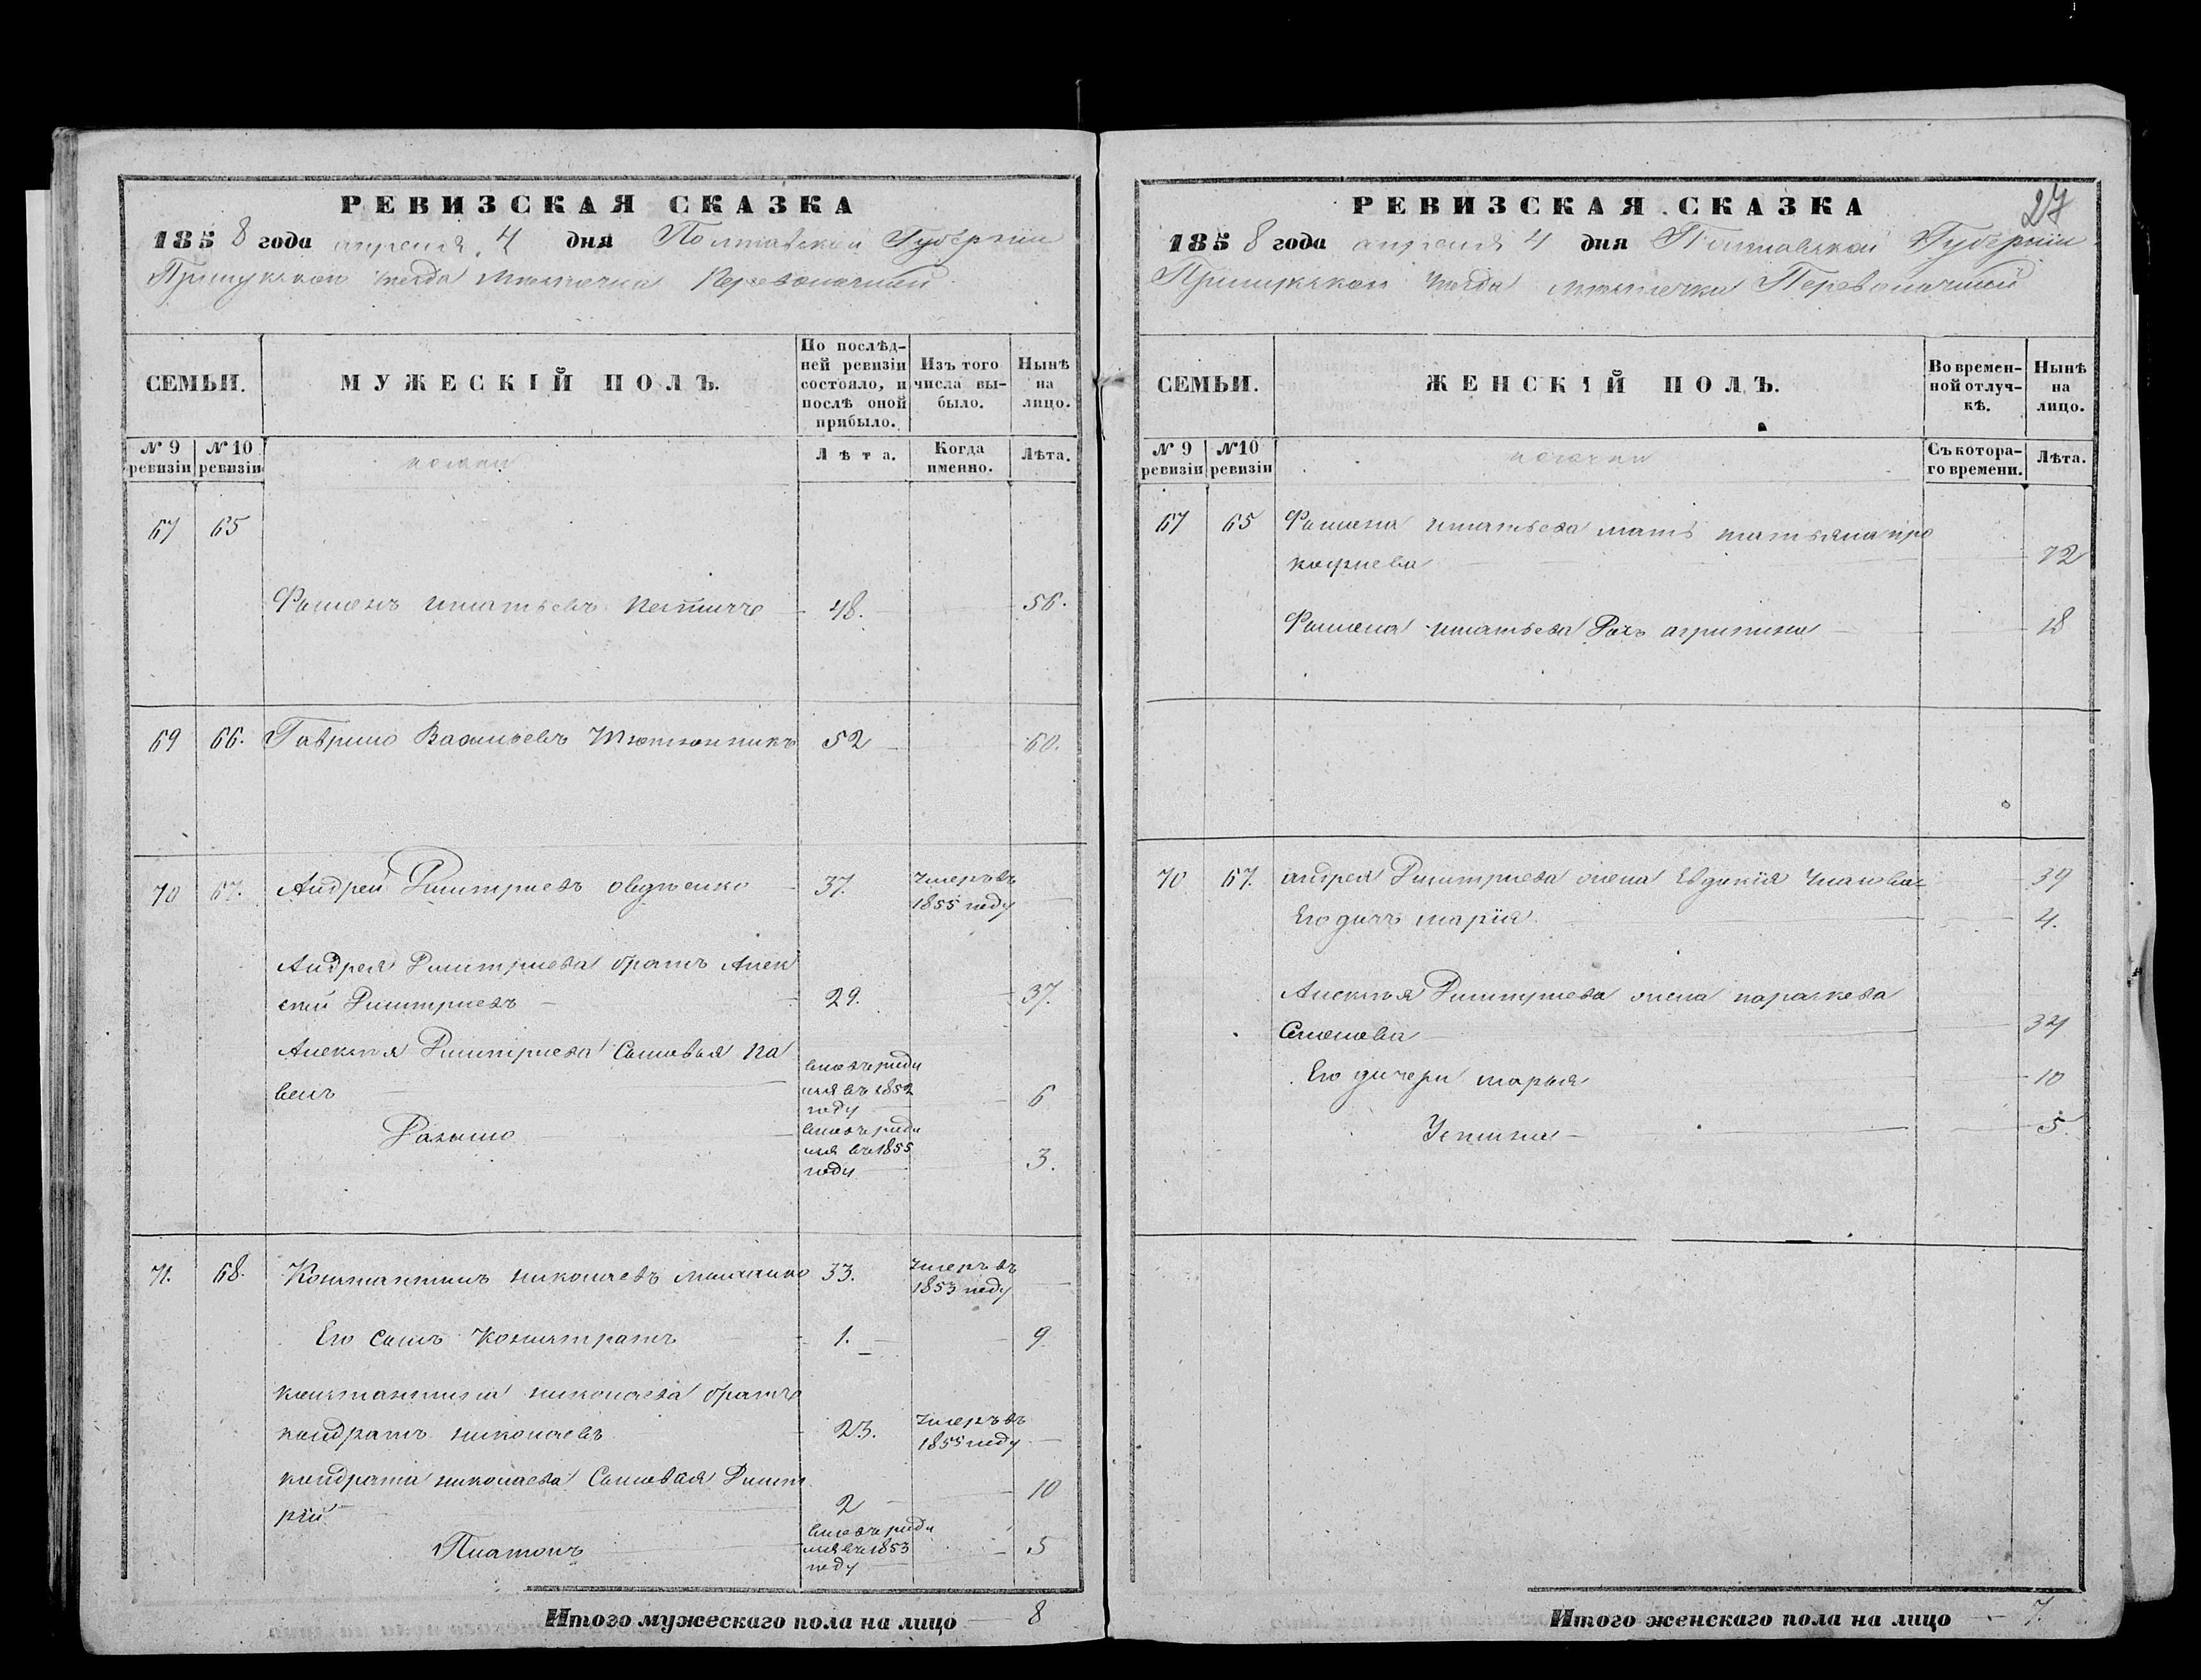 РЕВИЗСКАЯ СКАЗКА
1858 года апреля 4 дня Полтавской Губернии
Прилукскаго уезда местечка Переволочной
СЕМЬИ.
МУЖЕСКІЙ ПОЛЪ.
По послѣд-
ней ревизіи
состояло, и
послѣ оной
прибыло.
Изъ того
числа вы-
было.
Нынѣ
на
лицо.
№ 9
ревизіи
№ 10
ревизіи
козаки
Лѣта.
Когда
именно.
Лѣта.
67 65
Фитонъ Игнатьевъ 48. 56.
69 66. Гаврило Васильевъ Тютюнникъ 52 60.
70 67. Андрей Дмитриевъ Овдѣенко 37. умеръ въ
1855 году
Андрея Дмитриева братъ Алек
сѣй Дмитриевъ 29. 37.
Алексѣя Дмитриева Сыновья Па
велъ
вновь роди
лся въ 1852
году
6
вновь роди
лся въ 1855
году
3.
71. 68. Константинъ Николаевъ 33. умеръ въ
1853 году
Его сынъ Калистратъ 1. 9
Константина Николаева братъ
Кондратъ Николаевъ 23. умеръ въ
1855 году
Кондрата Николаева Сыновья Дмит
рій 2 10
Платонъ
вновь роди
лся въ 1853
году
5
Итого мужескаго пола на лицо 8
27
РЕВИЗСКАЯ СКАЗКА
1858 года апреля 4 дня Полтавской Губернии
Прилукскаго уезда местечка Переволочной
СЕМЬИ.
ЖЕНСКІЙ ПОЛЪ.
Во времен-
ной отлуч-
кѣ.
Нынѣ
на
лицо.
№ 9
ревизіи
№ 10
ревизіи
козачки
Съ котора-
го времени.
Лѣта.
67 65 Игнатьева мать Татьяна Про
кофиева 72
Игнатьева Дочь Агрипина 18
70 67. Андрея Дмитриева жена Евдокія 39
Его дочь Марія 4.
Алексѣя Дмитриева жена Параскева
Семенова 34
Его дочери Марья 10
Устина 5
Итого женскаго пола на лицо 7.